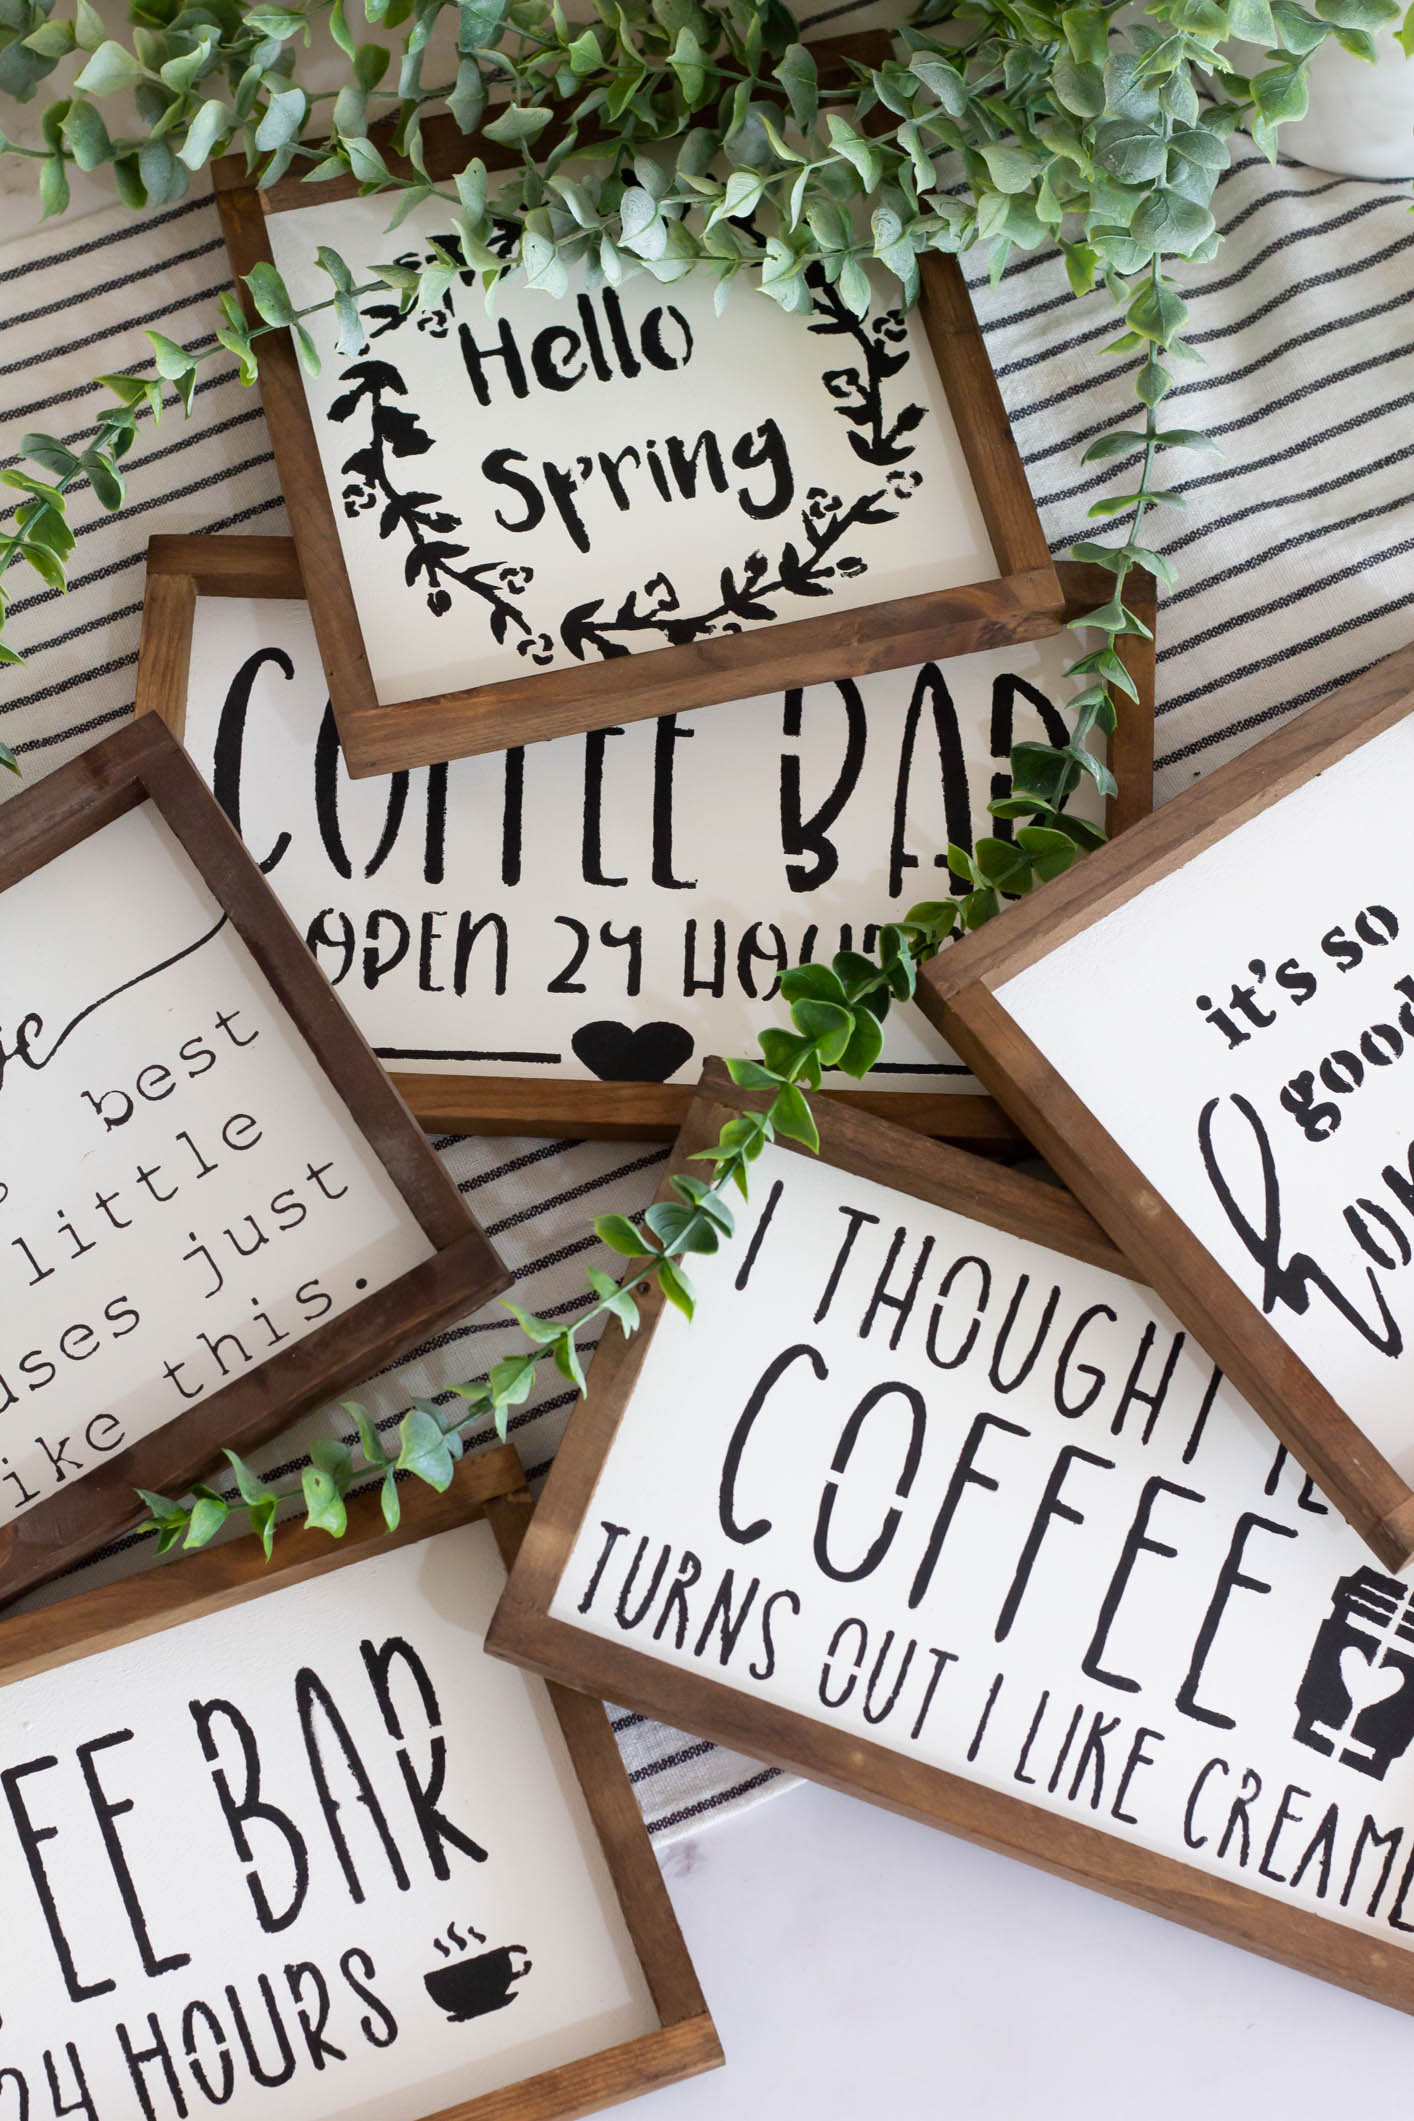 Hello
Spring
COFFEE BAR
OPEN 24 HOURS
best
little
just
like this.
it's so
good
I THOUGHT
COFFEE
TURNS OUT I LIKE CREAM
FEE BAR
24 HOURS